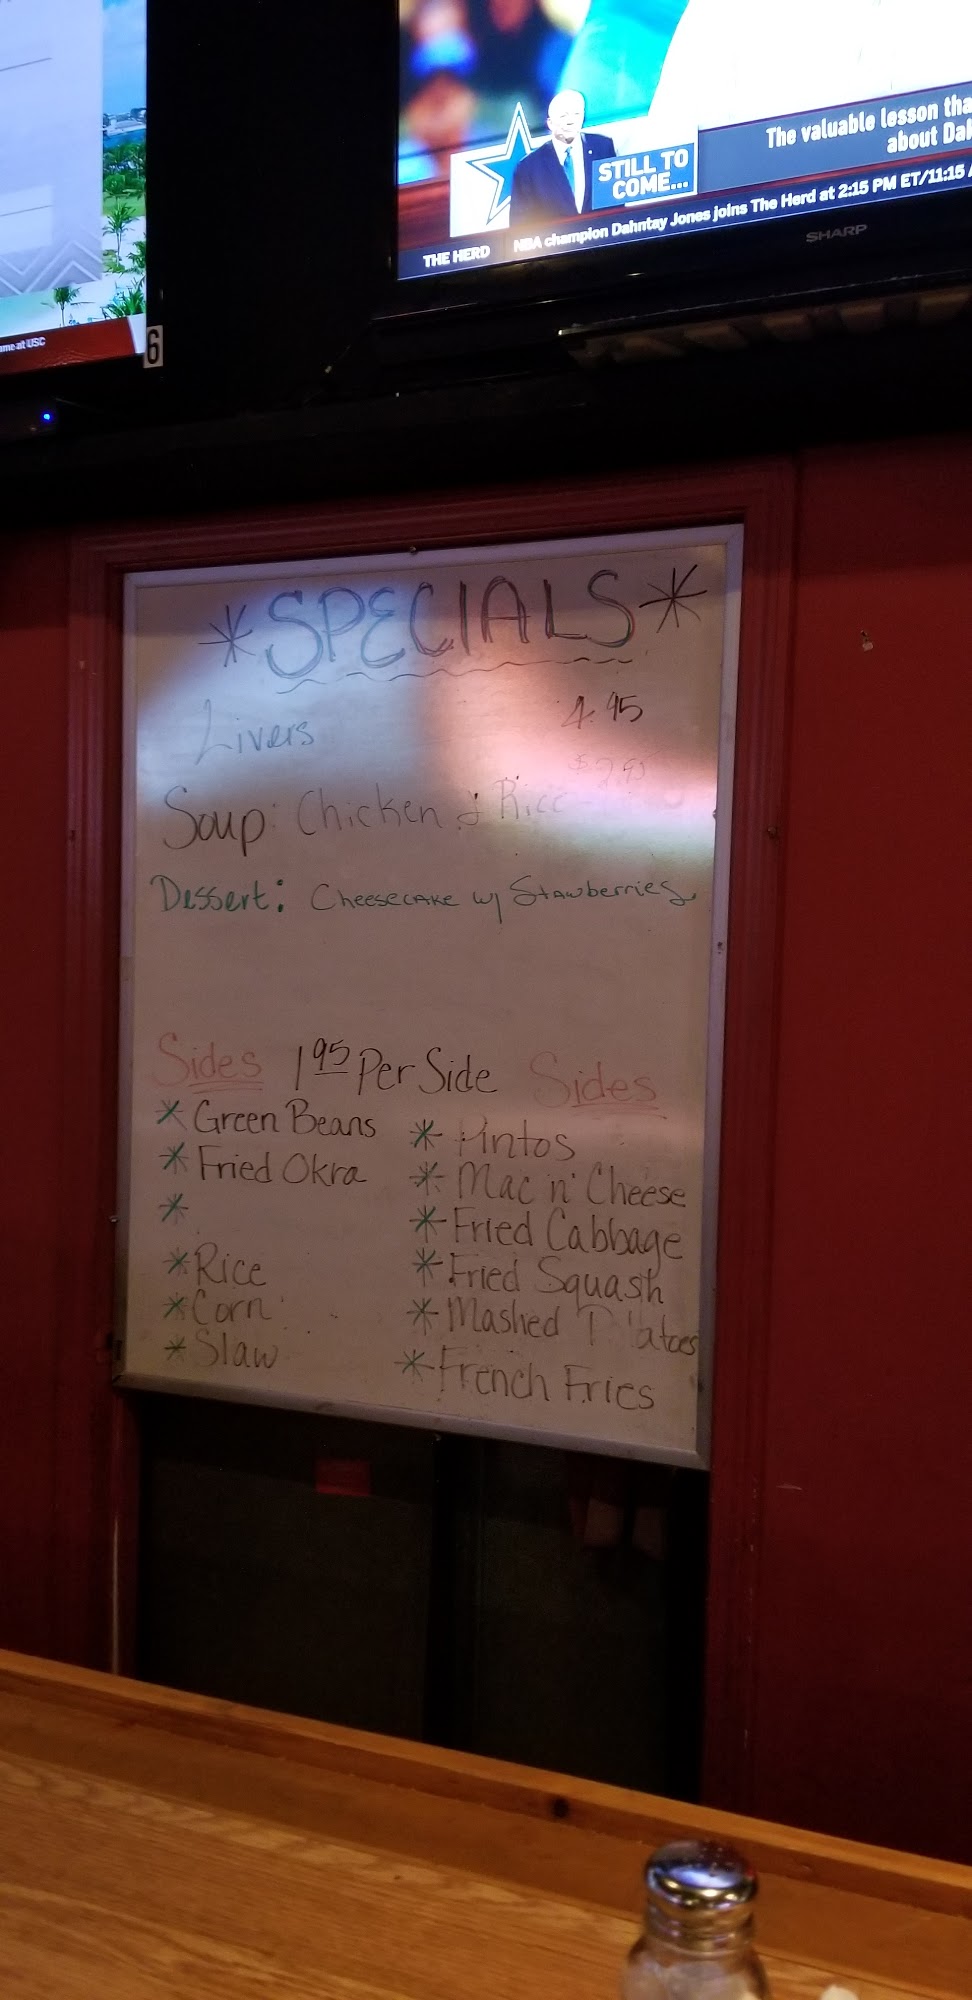 The valuable lesson tha
about Dal
STILL TO
COME...
THE HERD NBA champion Dahntay Jones joins The Herd at 2:15 PM ET/11:15 A
SHARP
ame at USC
6
*SPECIALS*
Livers 4.95
Soup: Chicken & Rice
Dessert: Cheesecake w/ Stawberries
Sides 1 95 Per Side Sides
* Green Beans
* Fried Okra
*
* Rice
* Corn
* Slaw
* Pintos
* Mac n' Cheese
* Fried Cabbage
* Fried Squash
* Mashed
* French Fries